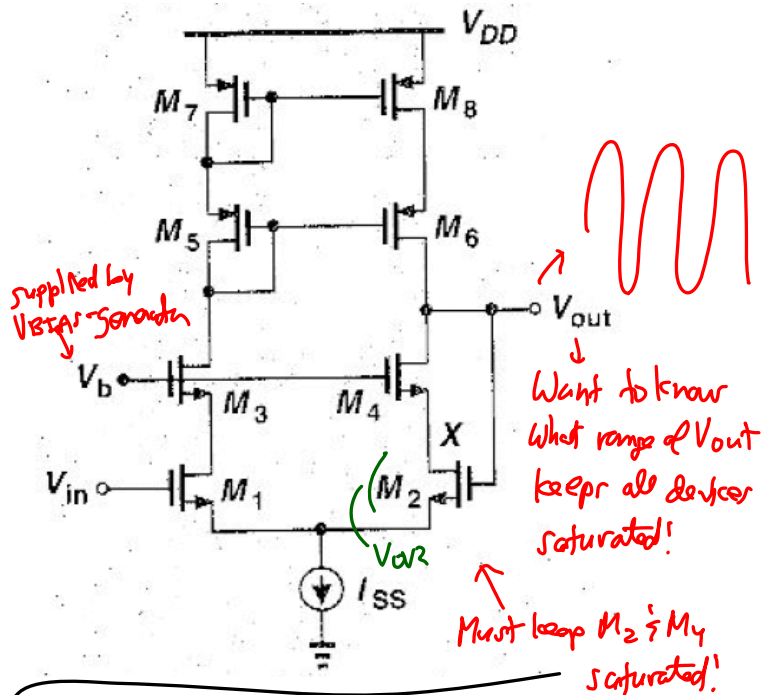 V_DD
M7
M8
M5
M6
supplied by
VBIAS-generator
Vout
Vb
M3
M4
X
Want to know
what range of Vout
keeps all devices
saturated!
Vin
M1
M2
Vov2
ISS
Must keep M2 & M4
saturated!